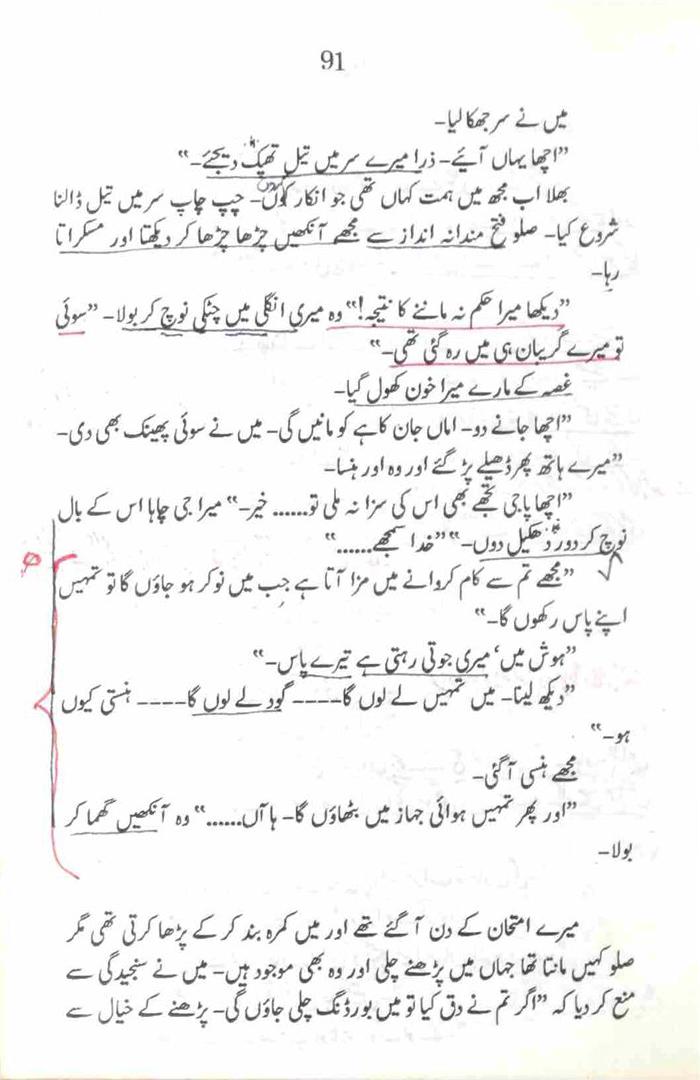 91
میں نے سر جھکا لیا۔
”اچھا یہاں آئیے۔ ذرا میرے سر میں تیل تھپک دیجئے۔“
بھلا اب مجھ میں ہمت کہاں تھی جو انکار کروں۔ چپ چاپ سر میں تیل ڈالنا
شروع کیا۔ صلو فتح مندانہ انداز سے مجھے آنکھیں چڑھا چڑھا کر دیکھتا اور مسکراتا
رہا۔
”دیکھا میرا حکم نہ ماننے کا نتیجہ!“ وہ میری انگلی میں چٹکی نوچ کر بولا۔ ”سوئی
تو میرے گریبان ہی میں رہ گئی تھی۔“
غصہ کے مارے میرا خون کھول گیا۔
”اچھا جانے دو۔ اماں جان کاہے کو مانیں گی۔ میں نے سوئی پھینک بھی دی۔
”میرے ہاتھ پھر ڈھیلے پڑ گئے اور وہ اور ہنسا۔
”اچھا پاجی تجھے بھی اس کی سزا نہ ملی تو...... خیر۔“ میرا جی چاہا اس کے بال
نوچ کر دور دھکیل دوں۔“ ”خدا سمجھے......“
”مجھے تم سے کام کروانے میں مزا آتا ہے جب میں نوکر ہو جاؤں گا تو تمہیں
اپنے پاس رکھوں گا۔“
”ہوش میں، میری جوتی رہتی ہے تیرے پاس۔“
”دیکھ لینا۔ میں تمہیں لے لوں گا۔۔۔۔ گود لے لوں گا۔۔۔۔ ہنستی کیوں
ہو۔“
مجھے ہنسی آ گئی۔
”اور پھر تمہیں ہوائی جہاز میں بٹھاؤں گا۔ ہاآں......“ وہ آنکھیں گھما کر
بولا۔
میرے امتحان کے دن آ گئے تھے اور میں کمرہ بند کر کے پڑھا کرتی تھی مگر
صلو کہیں مانتا تھا جہاں میں پڑھنے چلی اور وہ بھی موجود ہیں۔ میں نے سنجیدگی سے
منع کر دیا کہ ”اگر تم نے دق کیا تو میں بورڈنگ چلی جاؤں گی۔ پڑھنے کے خیال سے